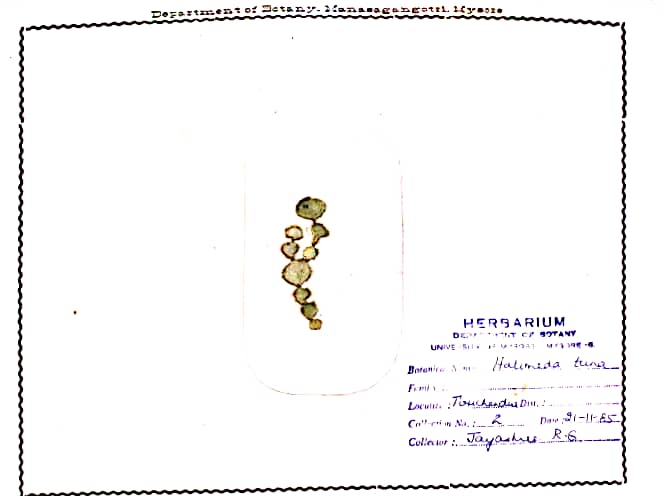 Department of Botany. Manasagangotri. Mysore
HERBARIUM
DEPARTMENT OF BOTANY
UNIVERSITY OF MYSORE MYSORE-6.
Botanical Name: Halimeda tuna
Family:
Locality: Dist.:
Collection No.: 2 Date: 21-11-85
Collector: Jayashree R.G